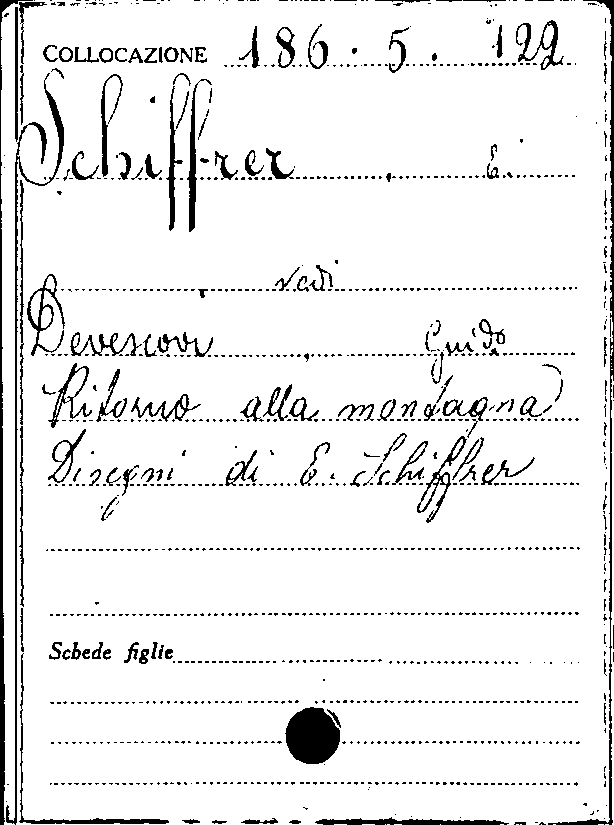 COLLOCAZIONE 186. 5. 122
Schiffrer, E.
vedi
Devescovi, Guido
Ritorno alla montagna
Disegni di E. Schiffrer
Schede figlie